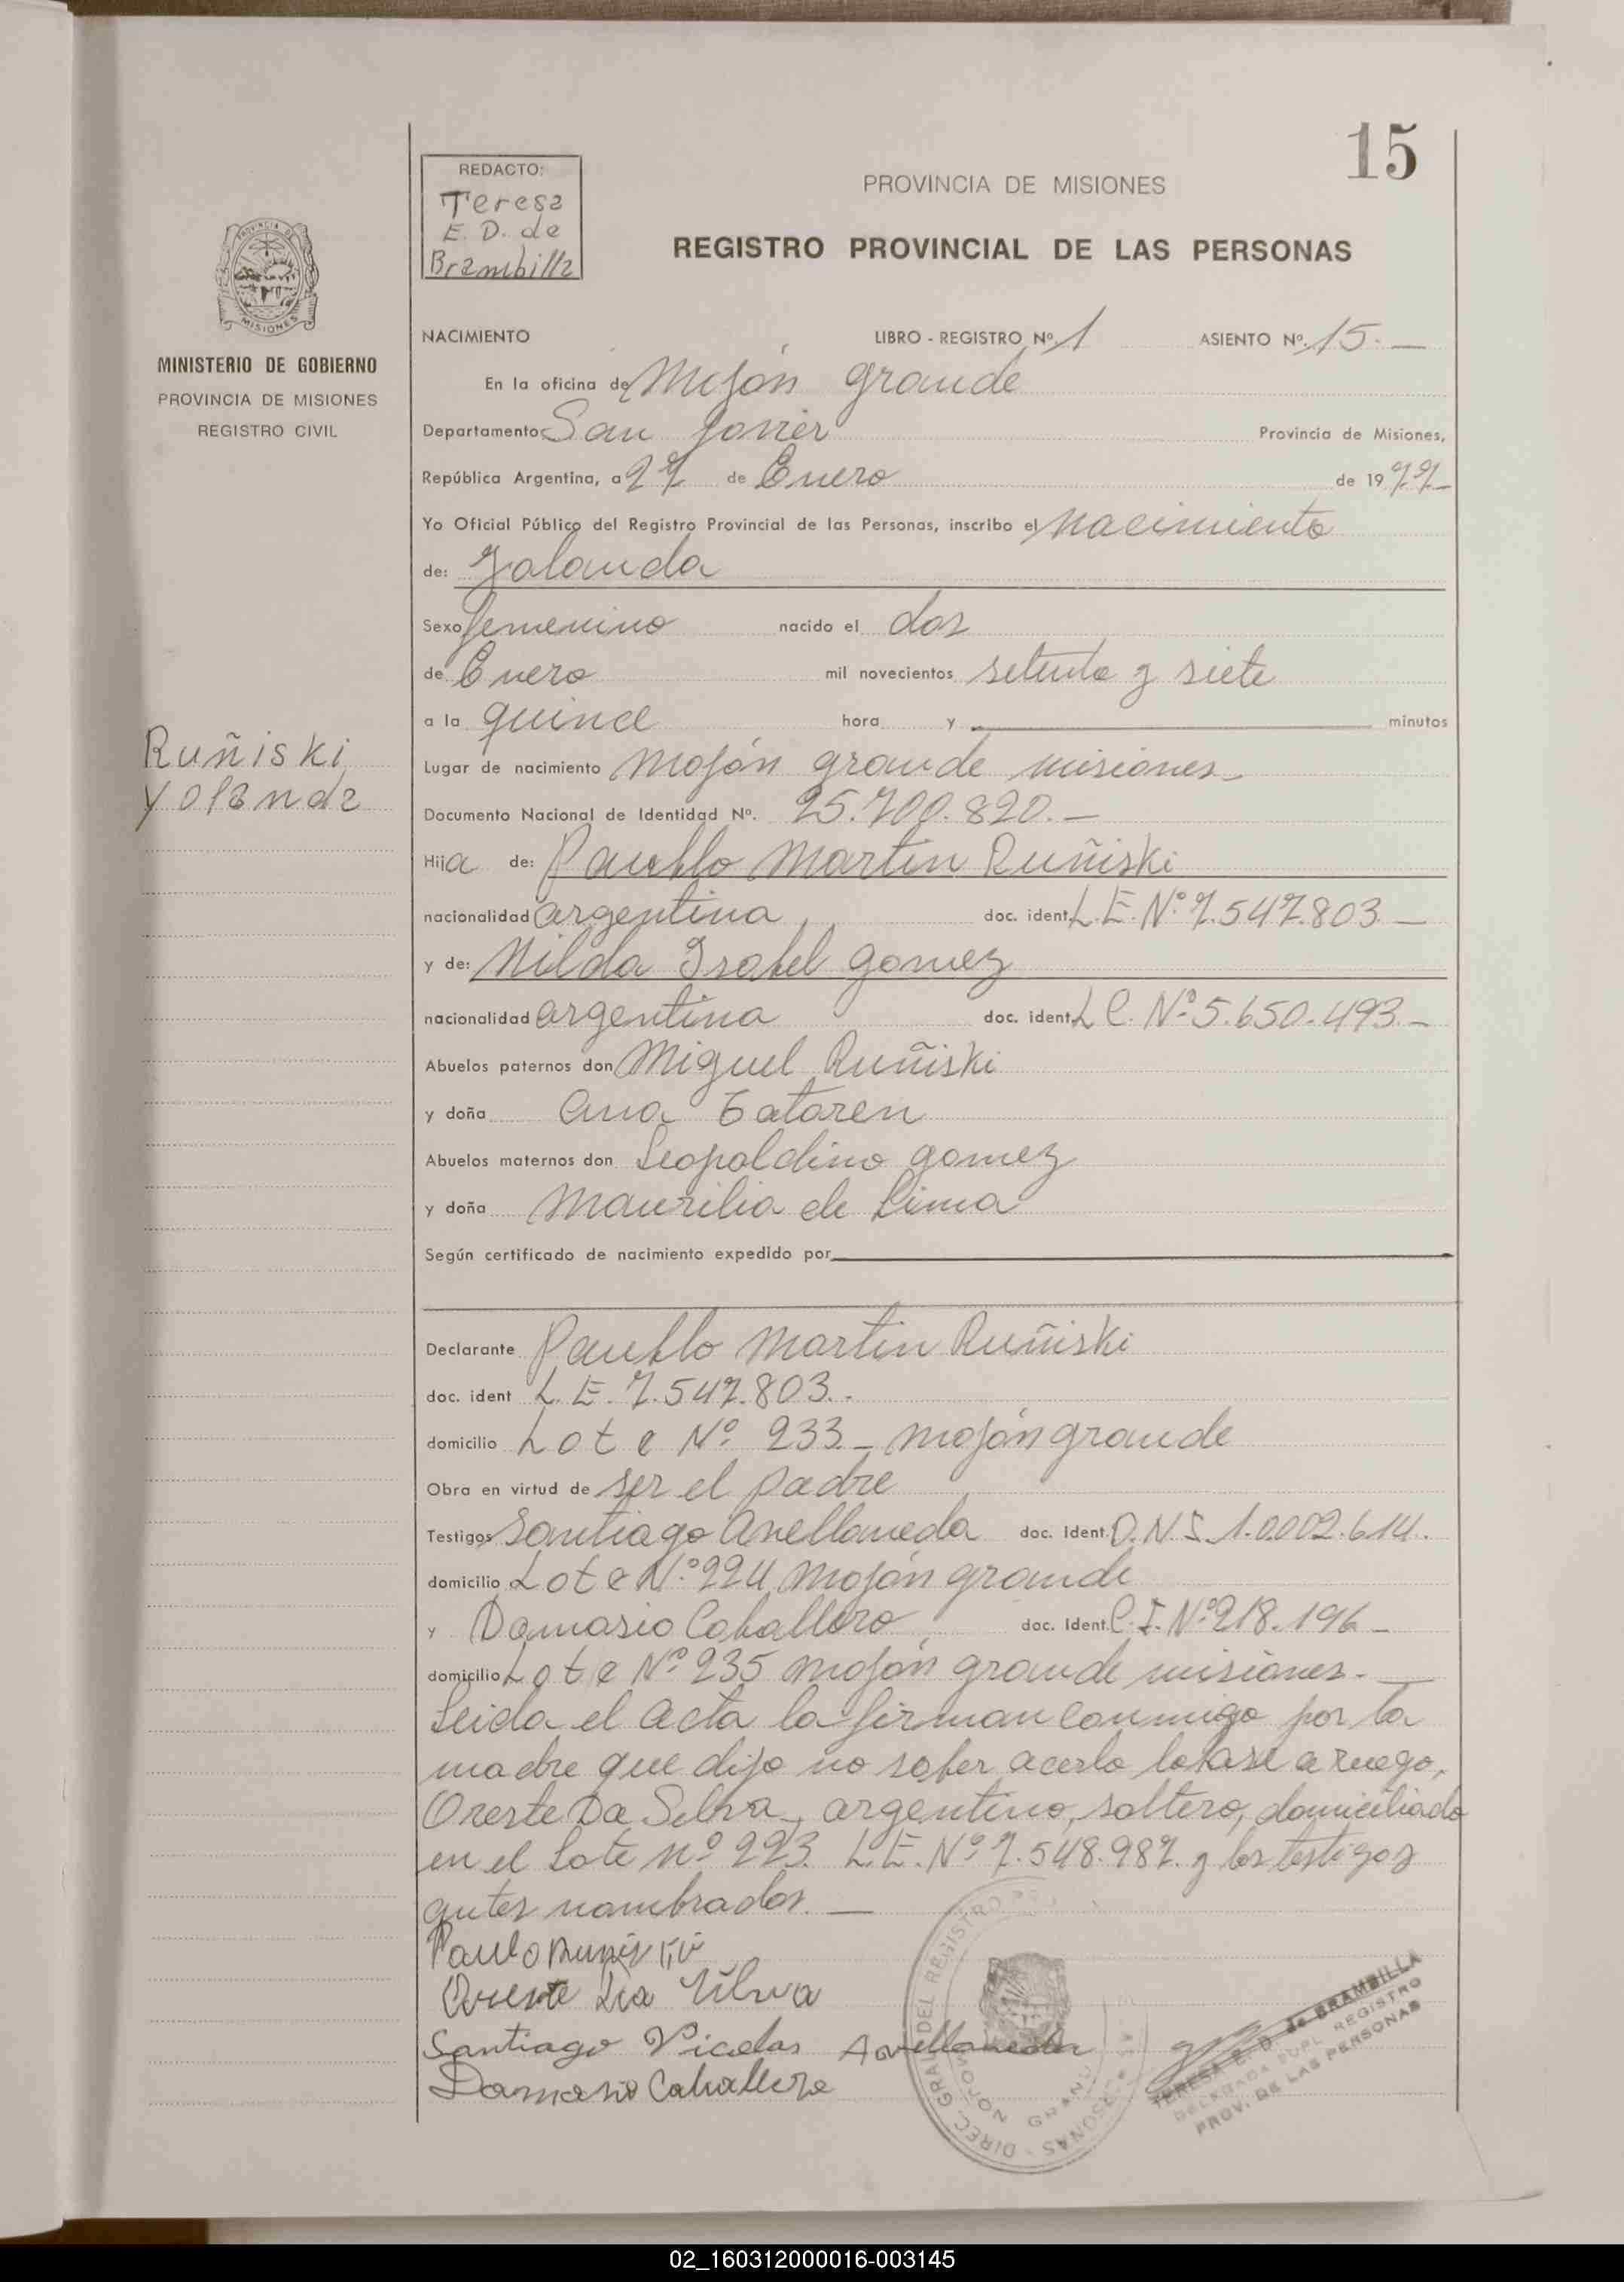 15
REDACTO:
Teresa
E. D. de
Brambilla
PROVINCIA DE MISIONES
REGISTRO PROVINCIAL DE LAS PERSONAS
PROVINCIA DE MISIONES
MINISTERIO DE GOBIERNO
PROVINCIA DE MISIONES
REGISTRO CIVIL
Ruñiski
Yolanda
NACIMIENTO LIBRO - REGISTRO Nº 1 ASIENTO Nº. 15.-
En la oficina de Mojón grande
Departamento San Javier Provincia de Misiones,
República Argentina, a 27 de Enero de 1977-
Yo Oficial Público del Registro Provincial de las Personas, inscribo el nacimiento
de: Yolanda
Sexo femenino nacido el dos
de Enero mil novecientos setenta y siete
a la quince hora y minutos
Lugar de nacimiento Mojón grande misiones-
Documento Nacional de Identidad Nº. 25.700.820.-
Hija de: Paublo Martin Ruñiski
nacionalidad argentina doc. ident. L.E. Nº 7.547.803-
y de: Nilda Isabel gomez
nacionalidad argentina doc. ident. L C. Nº 5.650.493.-
Abuelos paternos don Miguel Ruñiski
y doña Ana Tataren
Abuelos maternos don Leopoldino gomez
y doña Maurilia de Lima
Según certificado de nacimiento expedido por
Declarante Paublo Martin Ruñiski
doc. ident L. E. 7.547.803.-
domicilio Lote Nº 233- mojón grande
Obra en virtud de ser el padre
Testigos Santiago Avellaneda doc. Ident. D.N.I. 1.0002.614.
domicilio Lote Nº 224 Mojón grande
y Damasio Caballero doc. Ident. C.I. Nº 218.196-
domicilio Lote Nº 235 mojón grande misiones.-
Leida el acta la firman conmigo por la
madre que dijo no saber acerlo lo ase a ruego,
Oreste Da Selva, argentino, soltero, domiciliado
en el Lote nº 223. L.E. Nº 7.548.987. y los testigos
antes nombrados.-
Oreste Da Silva
Santiago Nicolas Avellaneda
Damasio Caballero
DIREC. GRAL. DEL REGISTRO
PERSONAS
MOJON GRANDE
TERESA E. D. de BRAMBILLA
DELEGADA SUPL. REGISTRO
PROV. DE LAS PERSONAS
02_160312000016-003145